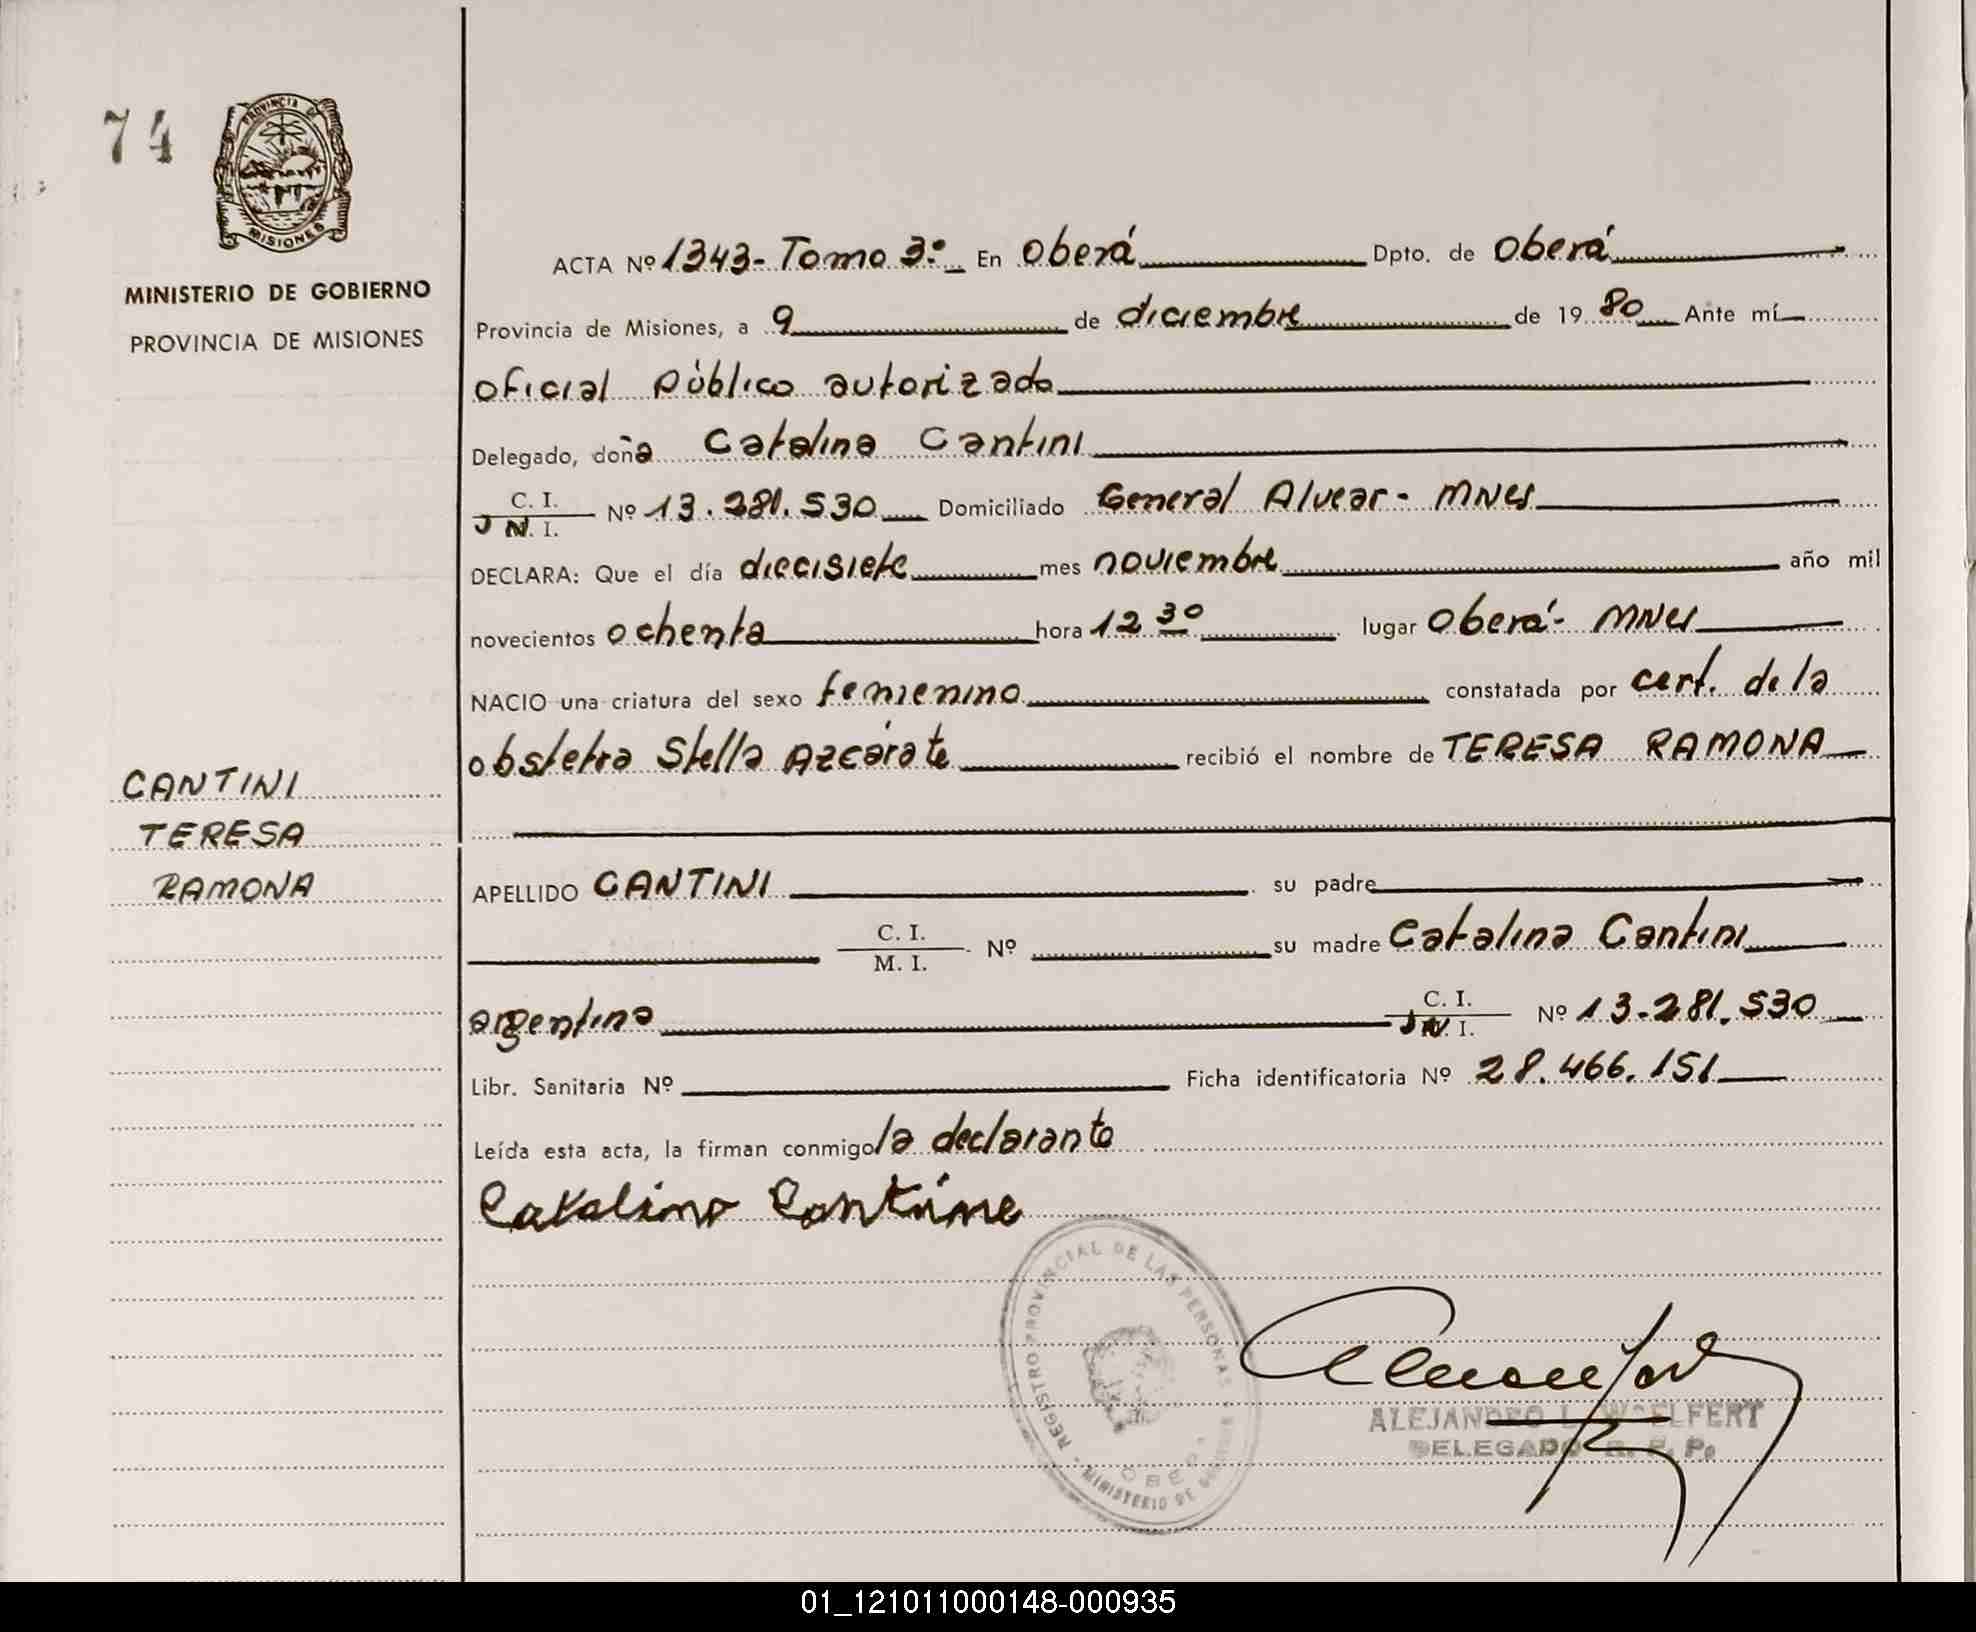 74
PROVINCIA DE
MISIONES
MINISTERIO DE GOBIERNO
PROVINCIA DE MISIONES
CANTINI
TERESA
RAMONA
ACTA Nº 1343- Tomo 3º En Oberá Dpto. de Oberá
Provincia de Misiones, a 9 de diciembre de 19 80 Ante mí
oficial público autorizado
Delegado, doña Catalina Cantini
C. I.
D N. I. Nº 13.281.530 Domiciliado General Alvear - MNes
DECLARA: Que el día diecisiete mes noviembre año mil
novecientos ochenta hora 12 30 lugar Oberá - MNes
NACIO una criatura del sexo femenino constatada por cert. de la
obstetra Stella Azcárate recibió el nombre de TERESA RAMONA
APELLIDO CANTINI su padre
C. I.
M. I. Nº su madre Catalina Cantini
argentina C. I.
D N. I. Nº 13.281.530
Libr. Sanitaria Nº Ficha identificatoria Nº 28.466.151
Leída esta acta, la firman conmigo la declarante
Catalina Cantine
REGISTRO PROVINCIAL DE LAS PERSONAS
MINISTERIO DE
OBERA
ALEJANDRO L. WOELFERT
DELEGADO R. P. P.
01_121011000148-000935